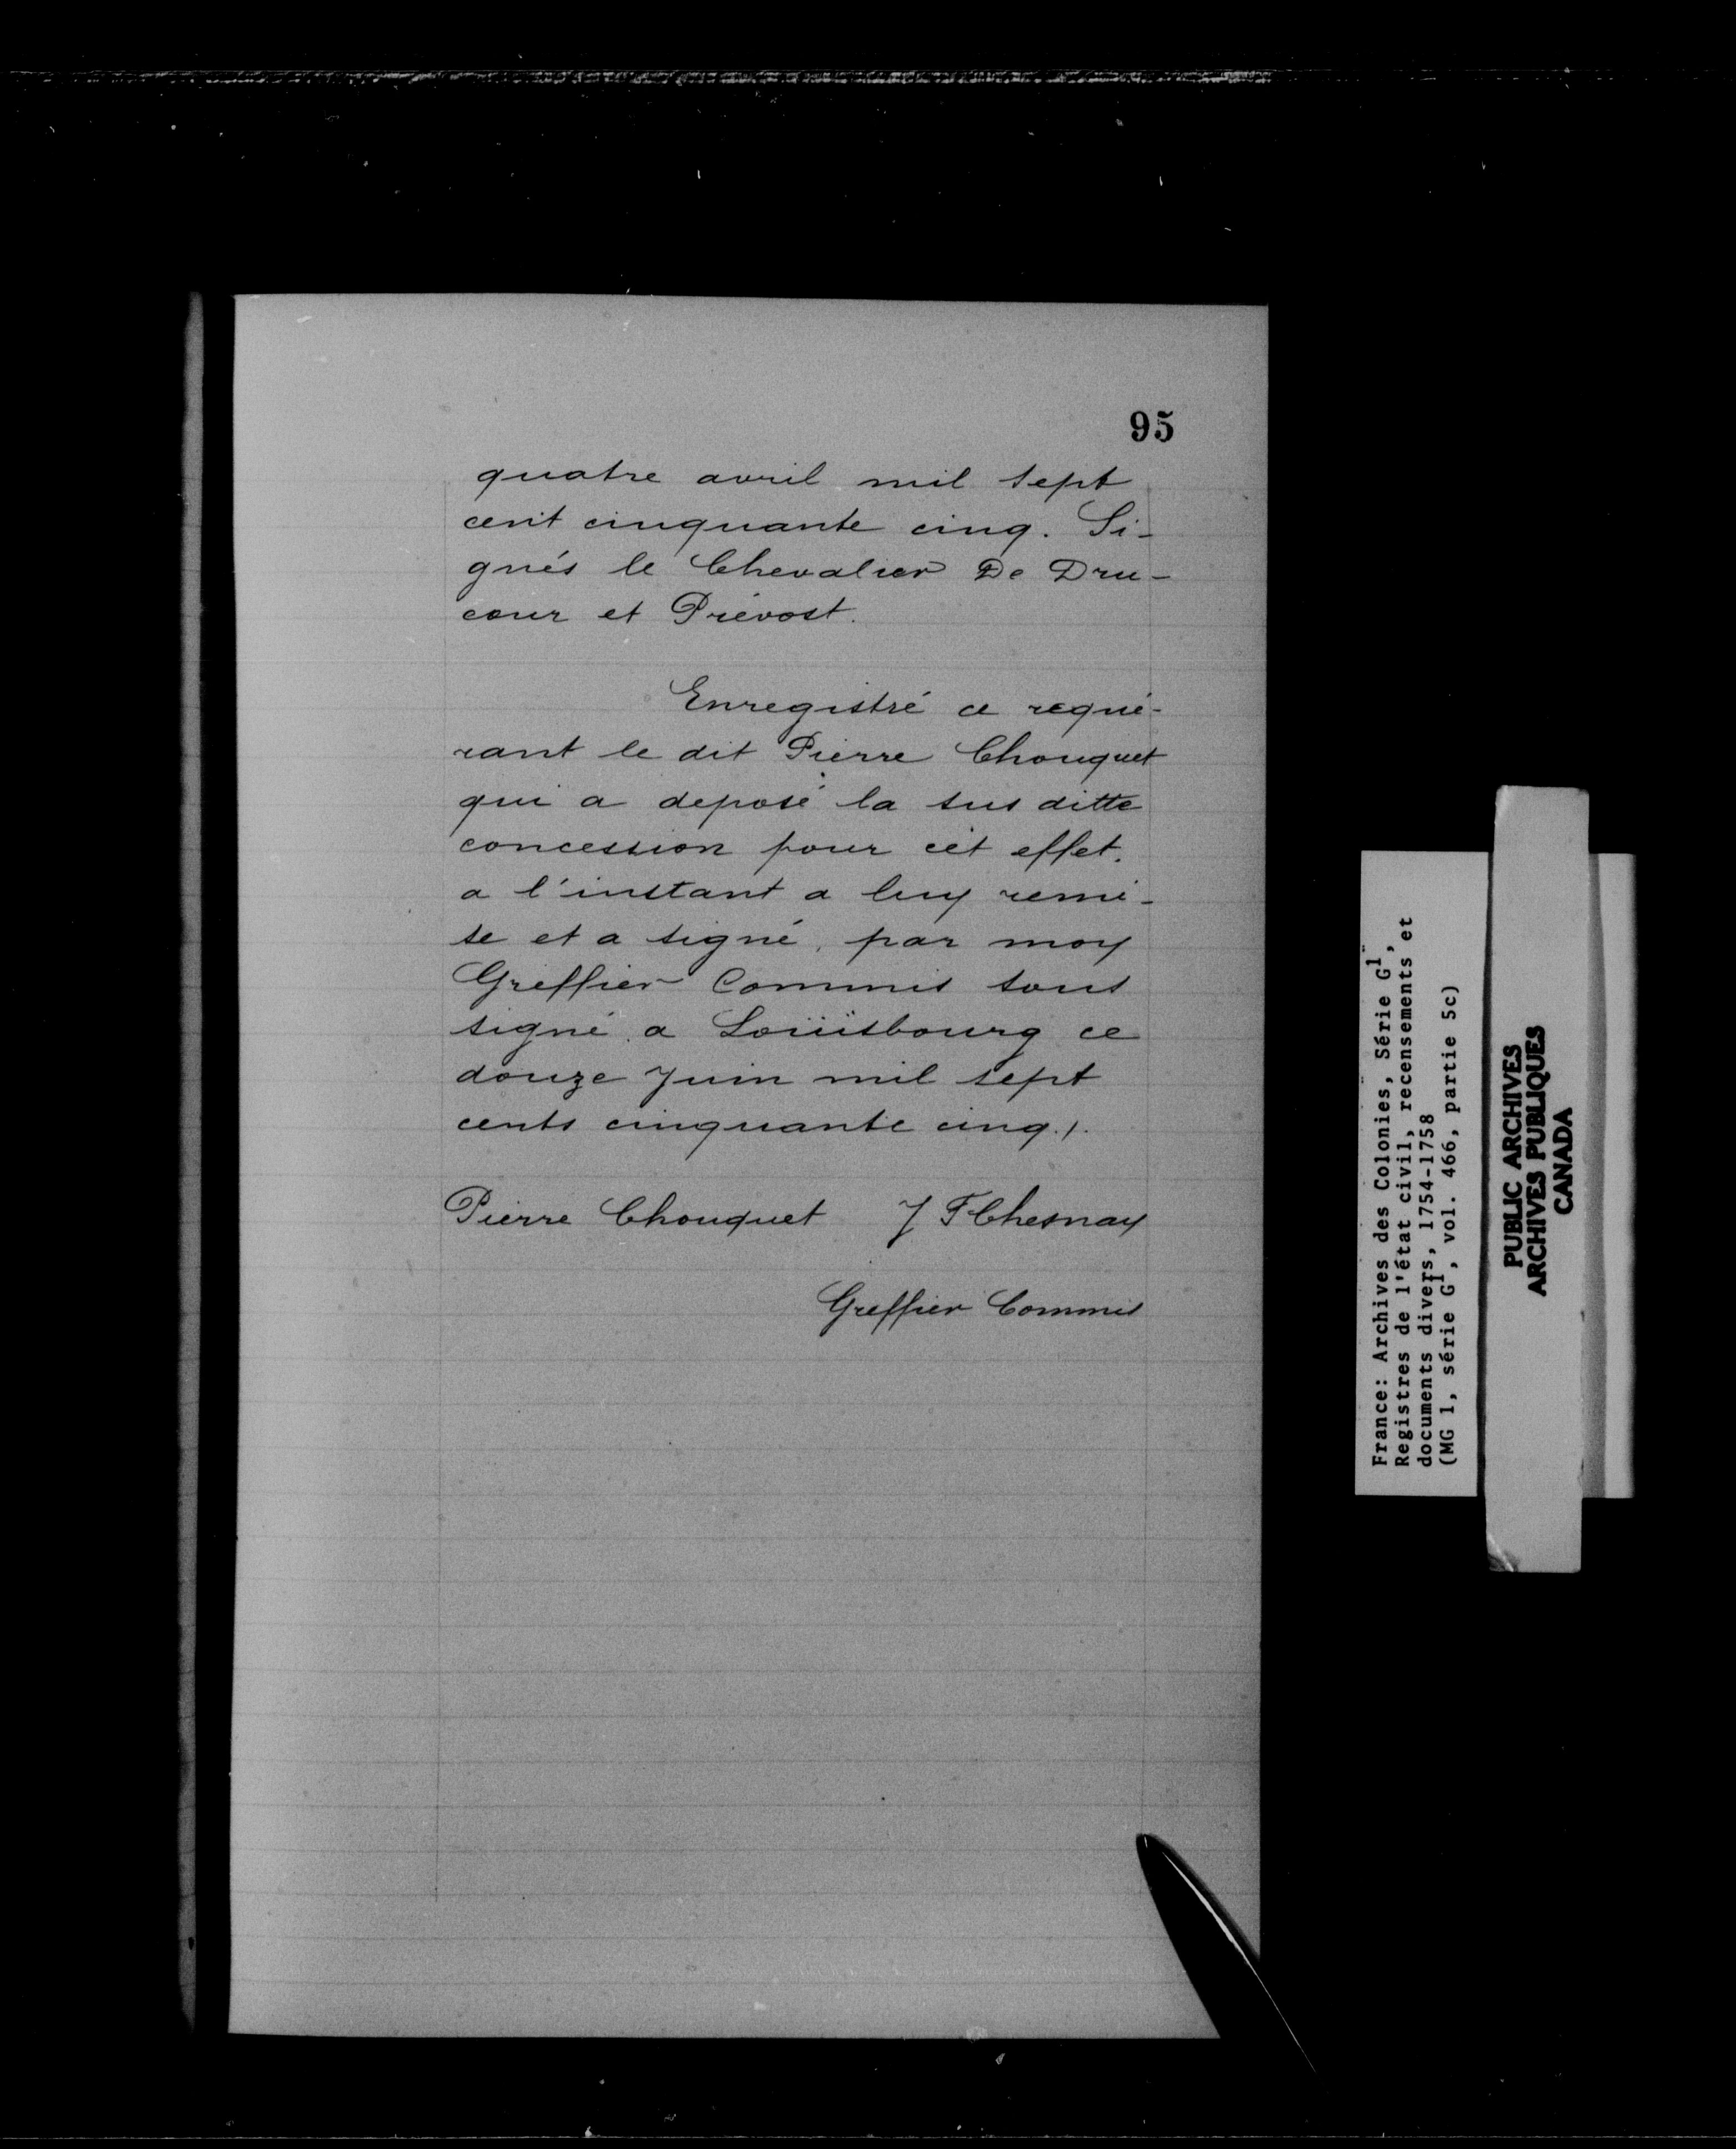 95
quatre avril mil sept
cent cinquante cinq. Si-
gnés le Chevalier De Dru-
cour et Prévost.
Enregistré ce requé-
rant le dit Pierre Chouquet
qui a deposé la sus ditte
concession pour cét effet.
a l'instant a luy remi-
se et a signé, par moy
Greffier Commis sous
signé a Loüisbourg ce
douze Juin mil sept
cents cinquante cinq./.
Pierre Chouquet J F Chesnay
Greffier Commis
France: Archives des Colonies, Série G1,
Registres de l'état civil, recensements et
documents divers, 1754-1758
(MG 1, série G1, vol. 466, partie 5c)
PUBLIC ARCHIVES
ARCHIVES PUBLIQUES
CANADA